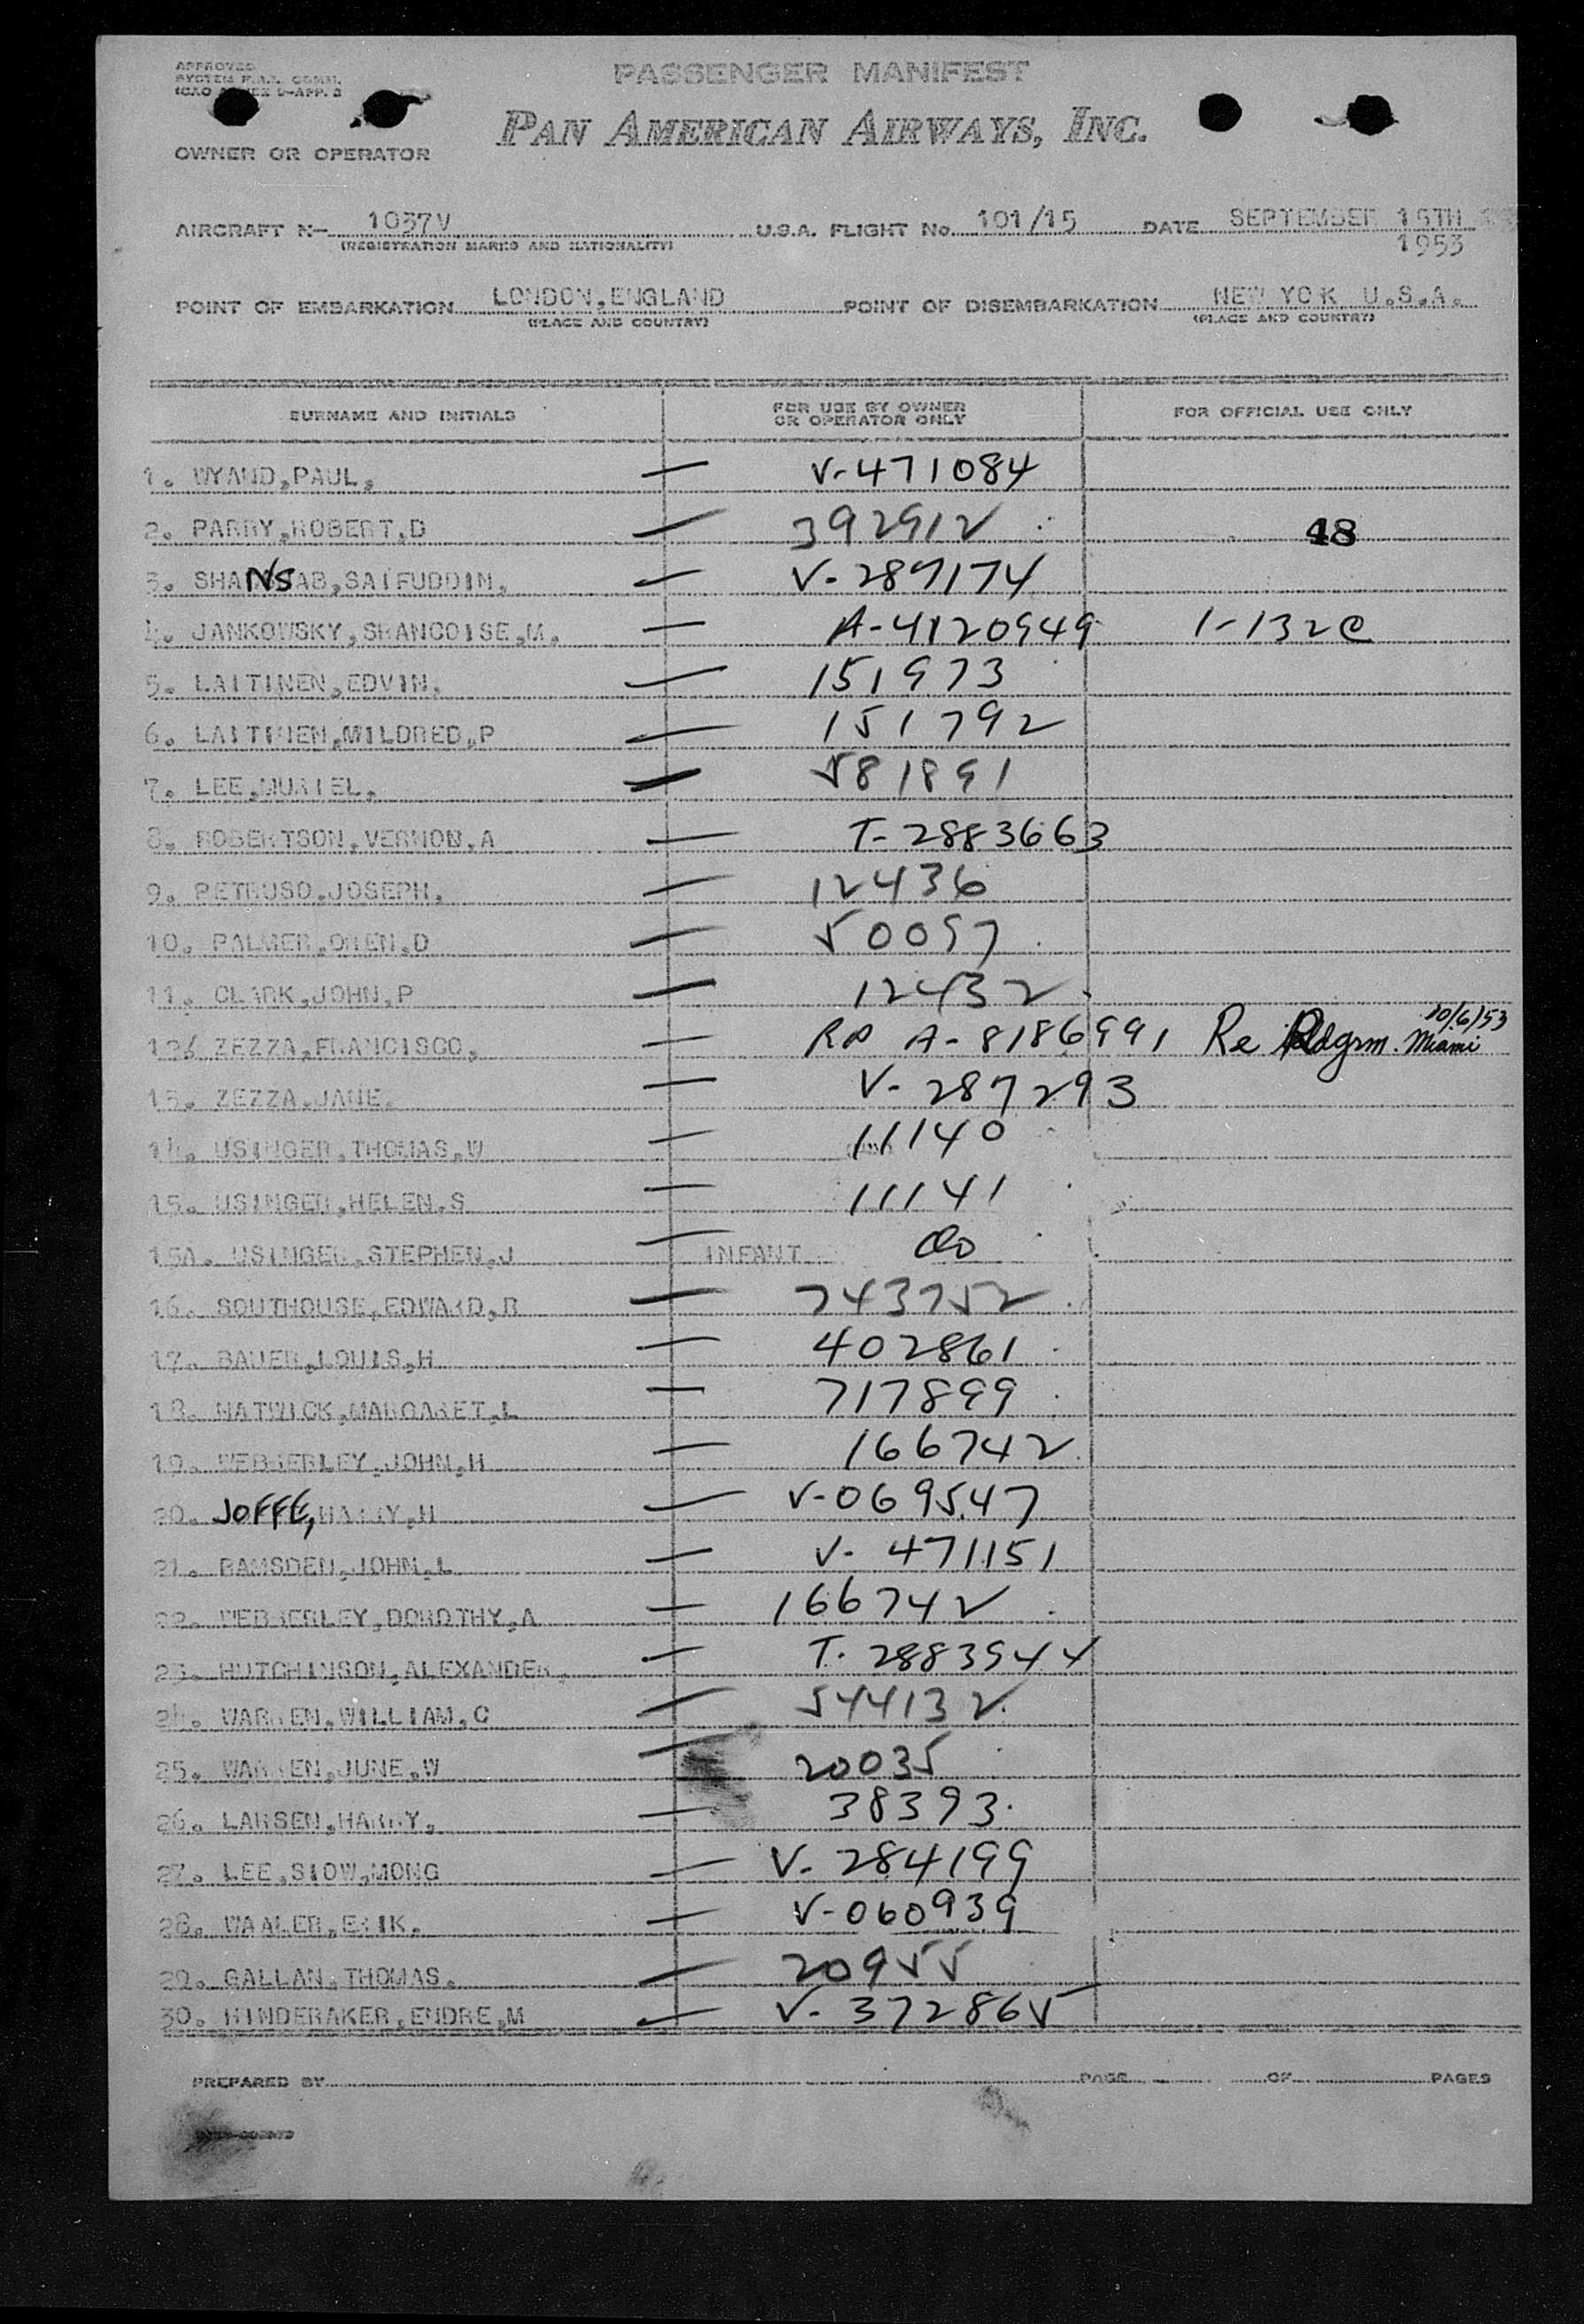 APPROVED
SYSTEM F.A.L. COMM.
ICAO ANNEX 9-APP. 3
PASSENGER MANIFEST
PAN AMERICAN AIRWAYS, INC.
OWNER OR OPERATOR
AIRCRAFT N- 1037V U.S.A. FLIGHT No. 101/15 DATE SEPTEMBER 15TH
(REGISTRATION MARKS AND NATIONALITY) 1953
POINT OF EMBARKATION LONDON,ENGLAND POINT OF DISEMBARKATION NEW YORK U.S.A.
(PLACE AND COUNTRY) (PLACE AND COUNTRY)
SURNAME AND INITIALS FOR USE BY OWNER OR OPERATOR ONLY FOR OFFICIAL USE ONLY
1. WYAND,PAUL, — V-471084
2. PARRY,ROBERT,D — 392912 48
3. SHANSAB,SAIFUDDIN, — V-287174
4. JANKOWSKY,SRANCOISE,M, — A-4120949 1-132C
5. LAITINEN,EDVIN, — 151973
6. LAITINEN,MILDRED,P — 151792
7. LEE,MURIEL, — 581891
8. ROBERTSON,VERNON,A — T-2883663
9. PETRUSO,JOSEPH, — 12436
10. PALMER,OREN,D — 50097
11. CLARK,JOHN,P — 12432
12. ZEZZA,FRANCISCO, — A-8186991 Re Rdgrm. Miami 10/6/53
13. ZEZZA,JANE. — V-287293
14. USINGER,THOMAS,W — 11140
15. USINGER,HELEN,S — 11141
15A. USINGER,STEPHEN,J — INFANT do
16. SOUTHOUSE,EDWARD,B — 743752
17. BAUER,LOUIS,H — 402861
18. HATWICK,MARGARET,L — 717899
19. WEBBERLEY,JOHN,H — 166742
20. JOFFE,HARRY,H — V-069547
21. RAMSDEN,JOHN,L — V-471151
22. WEBBERLEY,DOROTHY,A — 166742
23. HUTCHINSON,ALEXANDER, — T-2883944
24. WARREN,WILLIAM,C — 544132
25. WARREN,JUNE,W — 20035
26. LARSEN,HARRY, — 38393
27. LEE,SIOW,MONG — V-284199
28. WAALER,ERIK. — V-060939
29. GALLAN,THOMAS. — 20955
30. HINDERAKER,ENDRE,M — V-372865
PREPARED BY PAGE OF PAGES